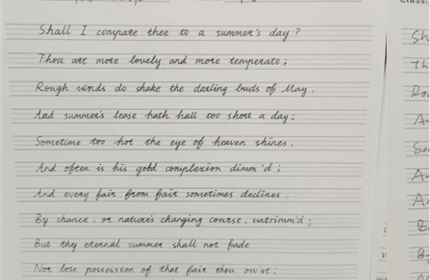 Shall I compare thee to a summer's day?
Thou art more lovely and more temperate;
Rough winds do shake the darling buds of May.
And summer's lease hath hall too short a day;
Sometime too hot the eye of heaven shines.
And often is his gold complexion dimm'd;
And every fair from fair sometimes declines.
By chance, or nature's changing course, untrimm'd;
But thy eternal summer shall not fade
Nor lose possession of that fair thou ow'st;
Class:
Sh
Th
Ro
A
So
A
A
B
B
N